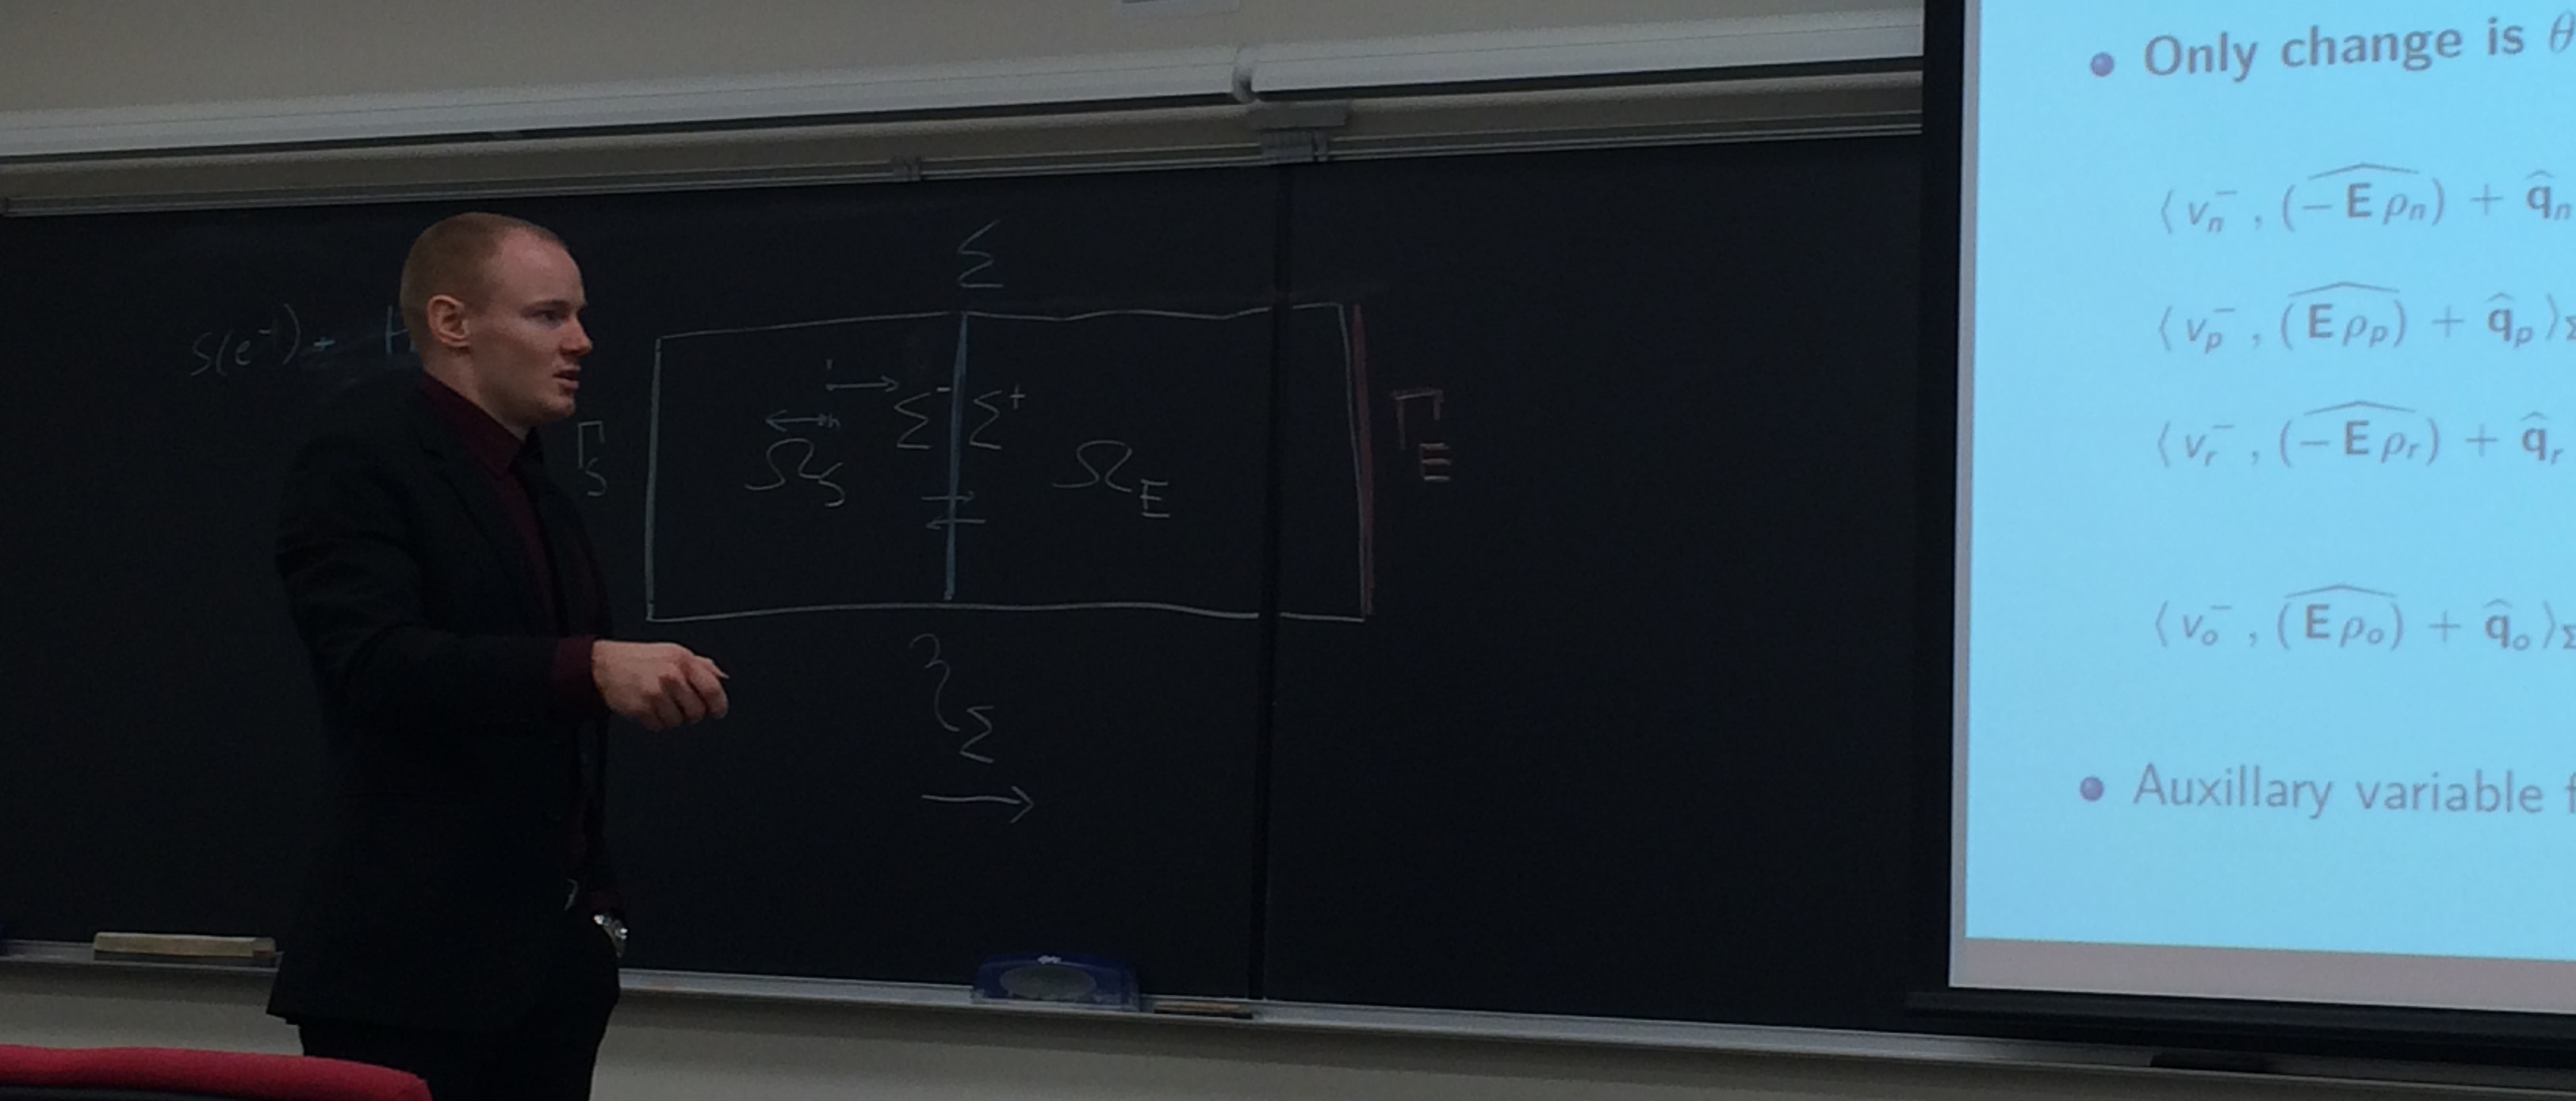 S(e⁻) +
Σ
Γ_S
Ω_S
Σ⁻
Σ⁺
Ω_E
Γ_E
η_Σ
• Only change is θ
⟨ v_n⁻ , (−E ρ_n)^ + q̂_n
⟨ v_p⁻ , (E ρ_p)^ + q̂_p ⟩_Σ
⟨ v_r⁻ , (−E ρ_r)^ + q̂_r
⟨ v_o⁻ , (E ρ_o)^ + q̂_o ⟩_Σ
• Auxillary variable f